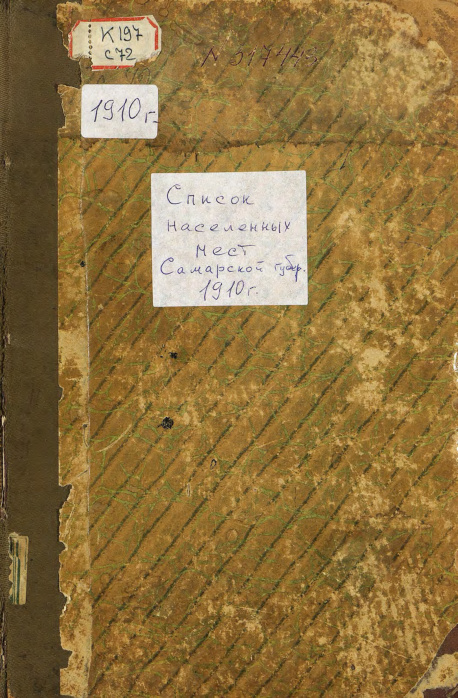 К197
С72
1910 г.
Список
населенных
мест
Самарской губер.
1910 г.